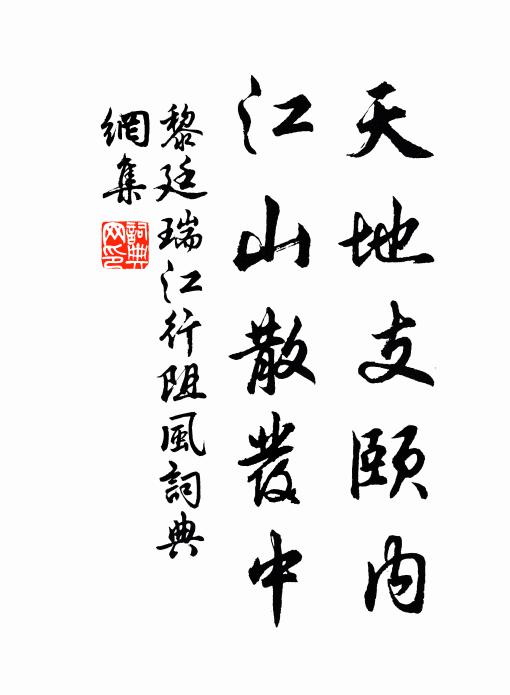 天地支頤内
江山散叢中
黎廷瑞江行阻風詞典
網集
詞典網印